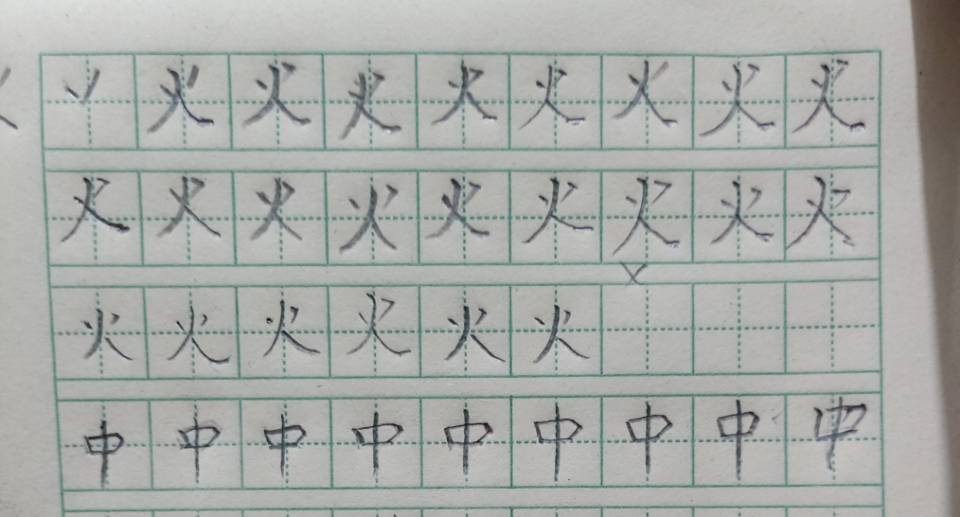 火火火火火火火火
火火火火火火火火火
火火火火火火
中中中中中中中中中